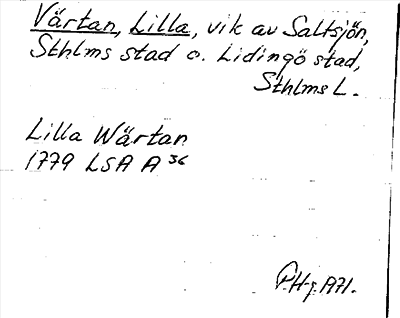 Värtan, Lilla, vik av Saltsjön,
Sthlms stad o. Lidingö stad,
Sthlms L.
Lilla Wärtan
1779 LSA A 36
A71.